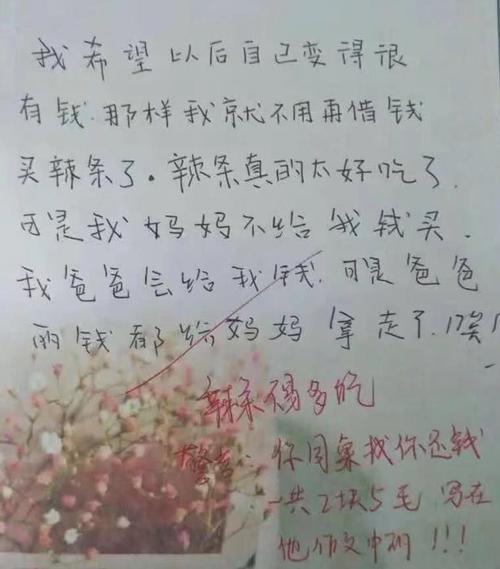 我希望以后自己变得很
有钱.那样我就不用再借钱
买辣条了.辣条真的太好吃了.
可是我妈妈不给我钱买.
我爸爸会给我钱.可是爸爸
的钱都给妈妈拿走了.唉!
辣条多吃
警告:你同桌找你还钱
一共2块5毛 写在
他作文中的!!!